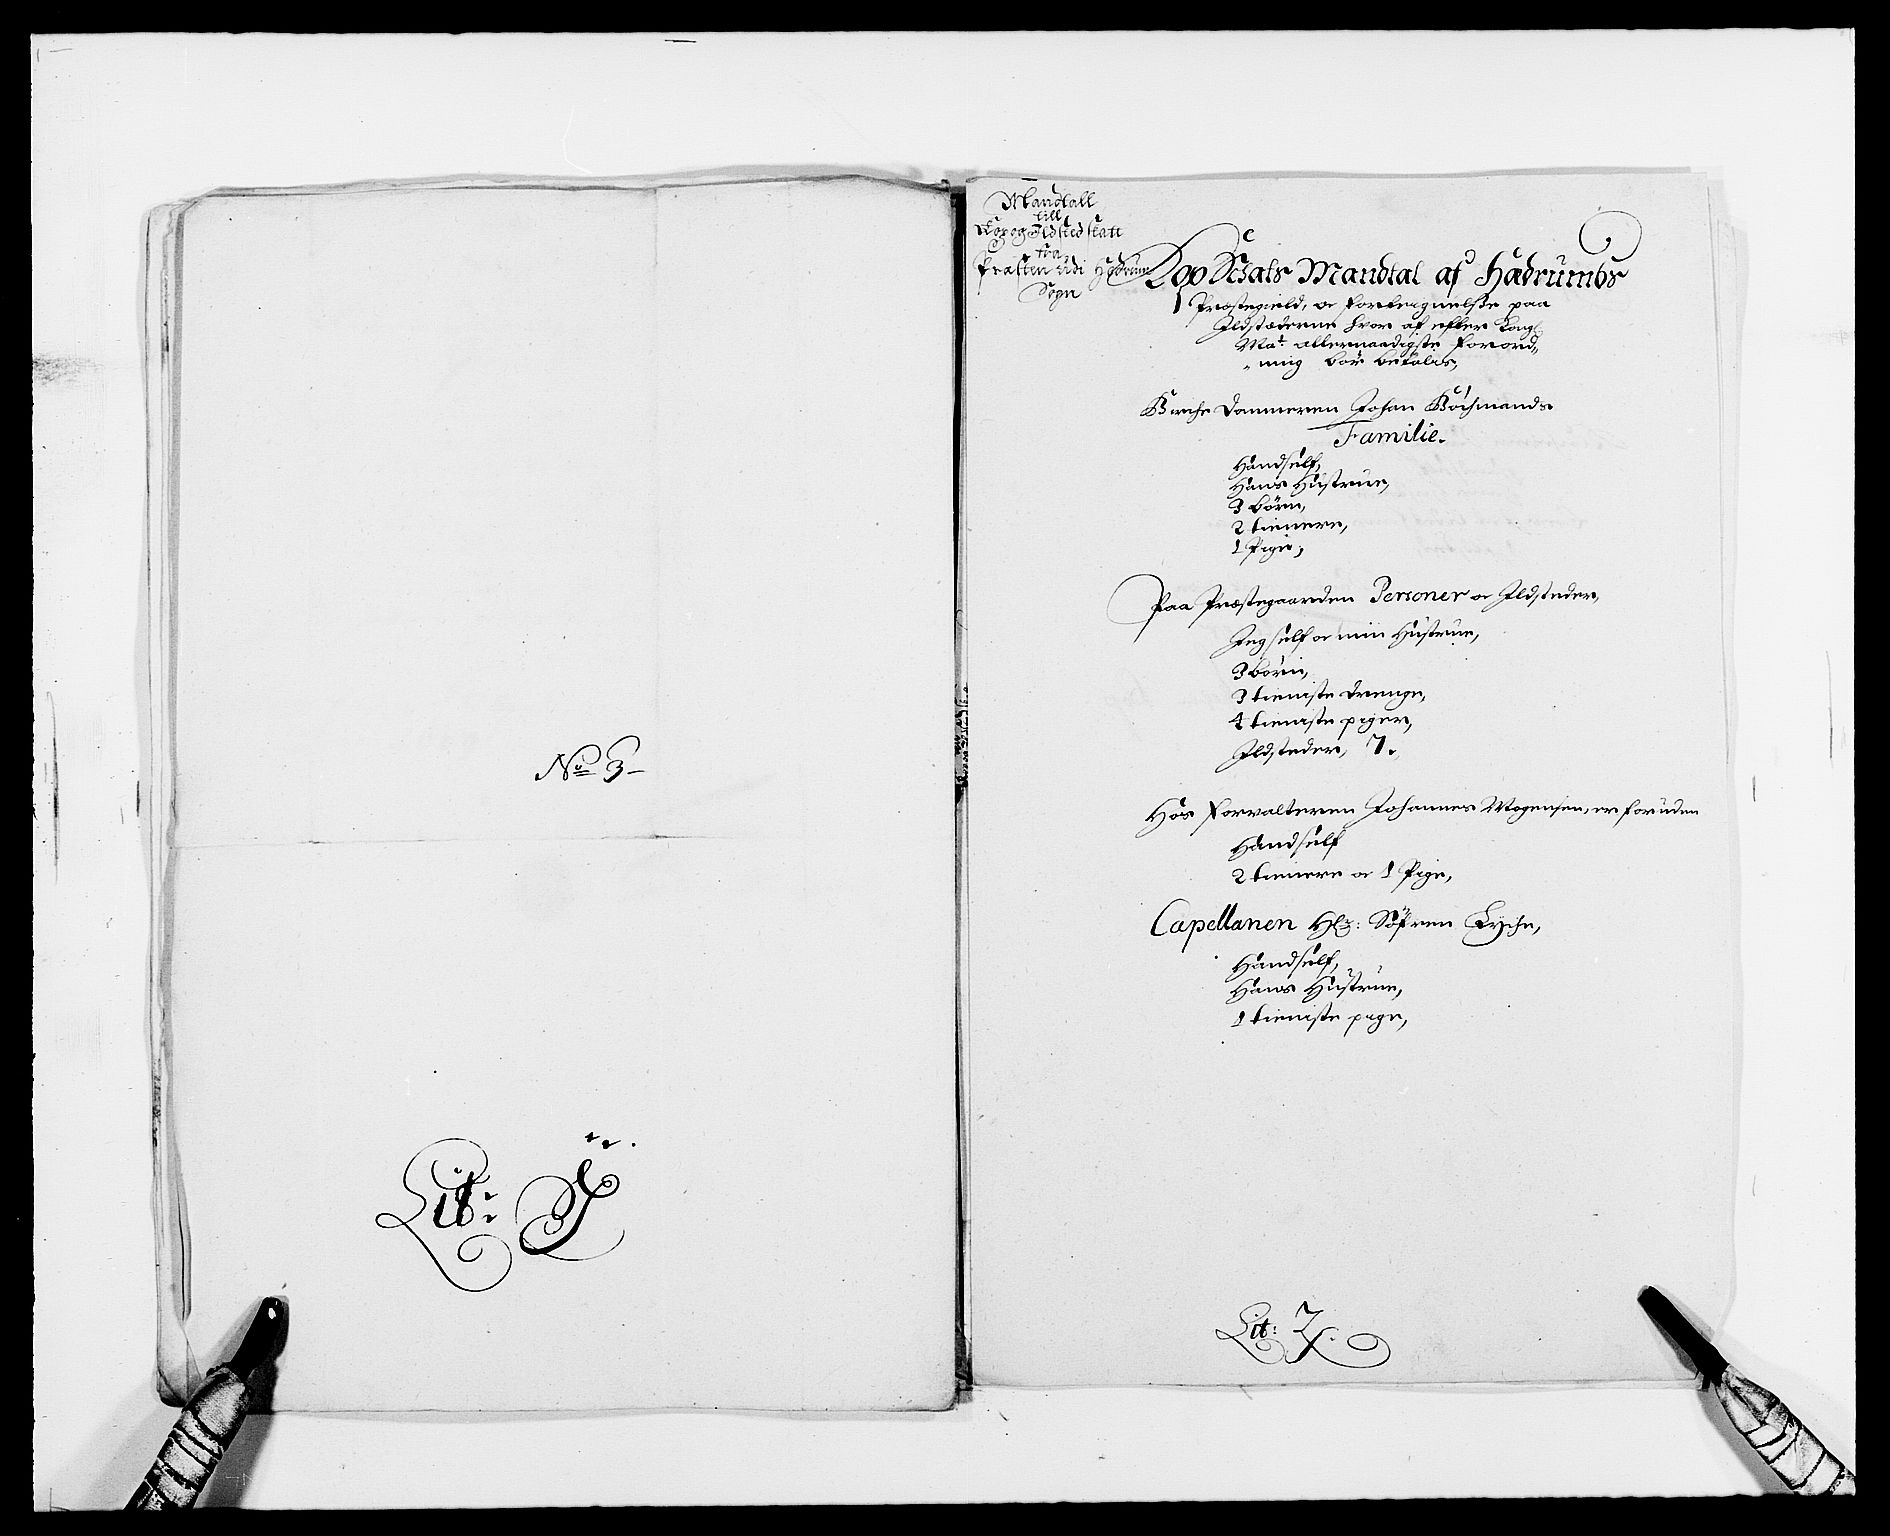 No 3
Lit: J
Mandtall
till
Kop og Ildsted skatt
fra
Præsten udi Hedrum
Sogn
Kop Schats Mandtal af Hædrumbs
Præstegield, oc Fortegnelse paa
Ildstæderne hvor af efter Kongl
Ma.t allernaadigste Forord„
„ning bör betalis,
Kirche Danneren Johan Böchmands
Familie.
Handself,
Hans Hüstrue,
3 börn,
2 tienere,
1 Pige,
Paa Præstegaarden Personer oc Ildsteder,
Jeg self oc min Hüstrue,
3 börn,
3 tieniste drenge,
4 tieniste piger,
Ildsteder, 7.
Hos Forvalteren Johannes Mogensen, er foruden
Handself
2 tienere oc 1 Pige,
Capellanen Hr: Söfren Lyche,
Handself,
Hans Hüstrue,
1 tieniste pige,
Lit: J.